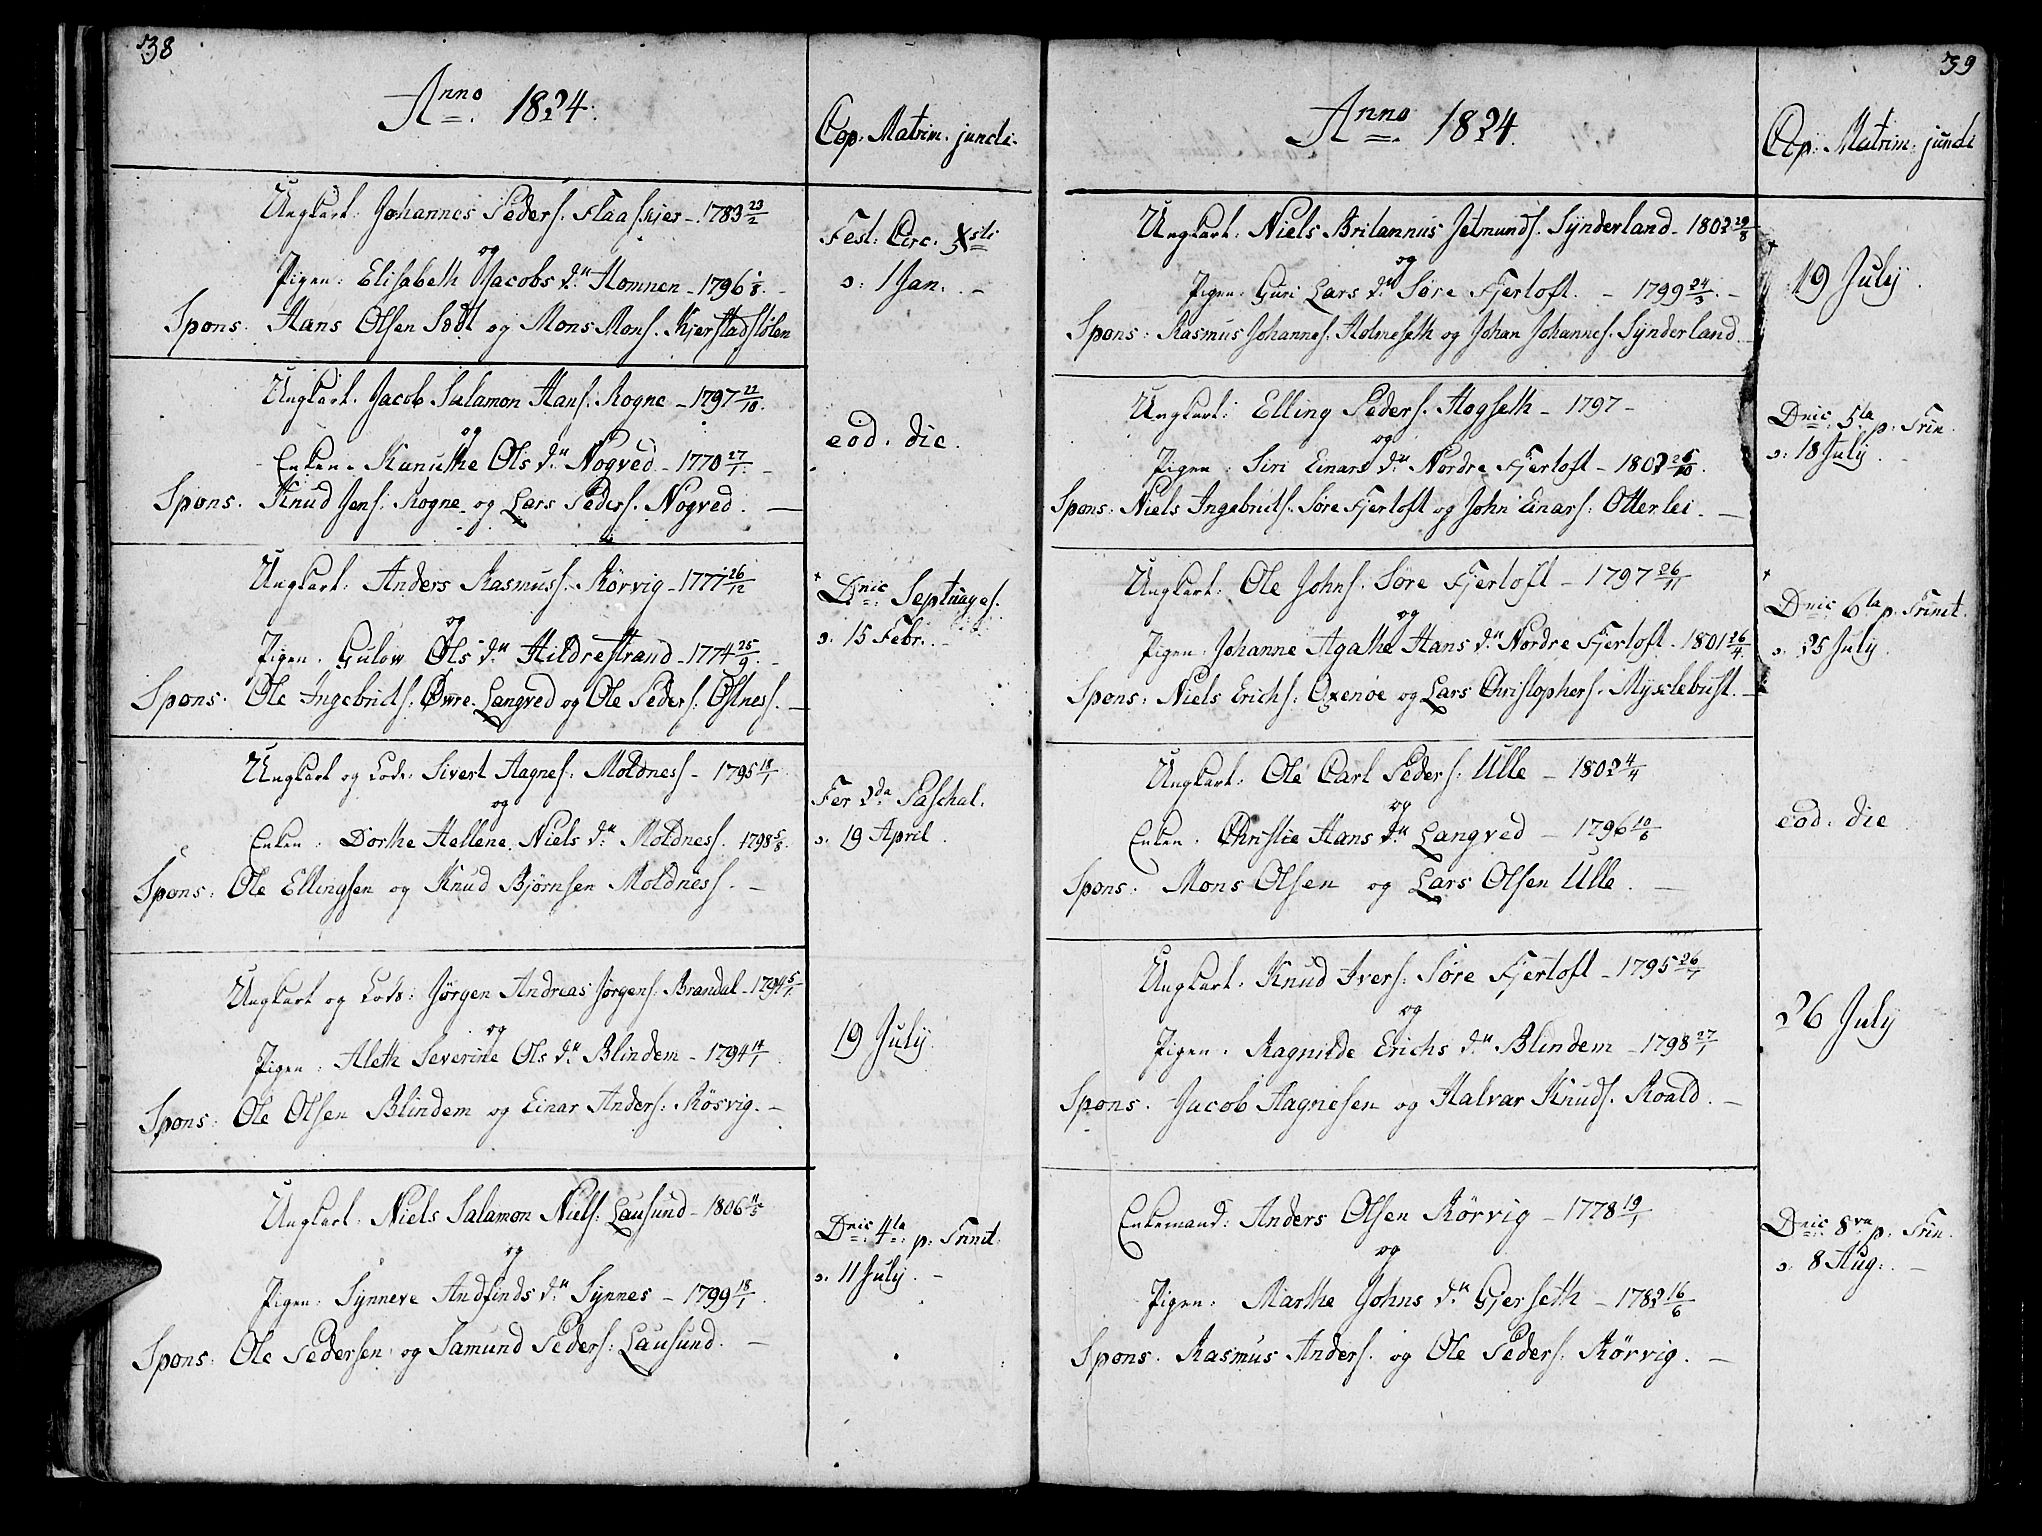 38
Anno 1824.
Cop. Matrim. juncti.
Ungkarl: Johannes Peders. Flaaskjer - 1783 23/2
og
Pigen: Elisabeth Jacobs d.r Homnen - 1796 1/8 -
Spons: Hans Olsen Sødt og Mons Mons. Kjerstadstølen
Fest: Circ. Xsti
d: 1 Jan. -
Ungkarl. Jacob Salamon Hans. Rogne - 1797 22/10.
og
Enken. Kanuthe Ols d.r Nogved - 1770 27/1. -
Spons. Knud Jens. Rogne og Lars Peders. Nogved. -
eod. die.
Ungkarl: Anders Rasmuss. Rörvig - 1777 26/12
og
Pigen. Gulow Ols d.r Hildrestrand - 1774 25/9. -
Spons. Ole Ingebrits: Øvre. Langved og Ole Peders. Østness. -
Dnic: Septuages.
d: 15 Febr. -
Ungkarl og Lods: Sivert Aagnes: Moldness - 1795 18/1
og
Enken. Dorthe Hellene Niels d.r Moldness. 1798 5/8.
Spons: Ole Ellingsen og Knud Bjørnsen Moldness. -
Fer 2da Paschal.
d. 19 April.
Ungkarl og Lods: Jørgen Andreas Jørgens: Brandal - 1794 5/1.
og
Pigen: Aleth Severine Ols d.r Blindem - 1794 14/1
Spons: Ole Olsen Blindem og Einar Anders: Rösvig. -
19 July.
Ungkarl. Niels Salamon Niels: Lausund - 1806 11/5
og
Pigen: Synneve Andfinds d.r Synnes - 1799 18/1.
Spons: Ole Pedersen og Samund Peders: Lausund. -
Dnic: 4ta: p: Trinit:
d. 11 July. -
39
Anno 1824.
Cop: Matrim: juncti
Ungkarl: Niels Britannus Jetmunds. Synderland - 1802 29/8
og
Pigen: Guri Lars d.r Søre Fjertoft. - 1799 24/3. -
Spons: Rasmus Johannes: Holmeseth og Johan Johannes. Synderland.
19 July.
Ungkarl: Elling Peders. Hogseth - 1797 -
og
Pigen: Siri Einars d.r Nordre Fjertoft - 1802 25/10.
Spons: Niels Ingebrits. Søre Fjertoft og John Einars: Otterlei. -
Dnic: 5ta p: Trin.
d: 18 July. -
Ungkarl: Ole Johns. Søre Fjertoft - 1797 26/11
og
Pigen: Johanne Agathe Hans d.r Nordre Fjertoft - 1801 26/4
Spons: Niels Erichs: Oxenøe og Lars Christophers. Myxlebust. -
Dnic 6ta p: Trinit.
d. 25 July.
Ungkarl: Ole Carl Peders: Ulle - 1802 4/4
og
Enken. Christie Hans d.r Langved - 1796 10/6
Spons: Mons Olsen og Lars Olsen Ulle. -
eod. die
Ungkarl. Knud Ivers: Søre Fjertoft - 1795 26/7
og
Pigen. Ragnilde Erichs d.r Blindem - 1798 27/1
Spons. Jacob Aagnesen og Halvar Knuds. Roald. -
26 July
Enkemand: Anders Olsen Rörvig - 1778 19/1
og
Pigen: Marthe Johns d.r Gjerseth - 1782 16/6
Spons. Rasmus Anders. og Ole Peders. Rörvig. -
Dnic: 8va p: Trin.
d. 8 Aug: -